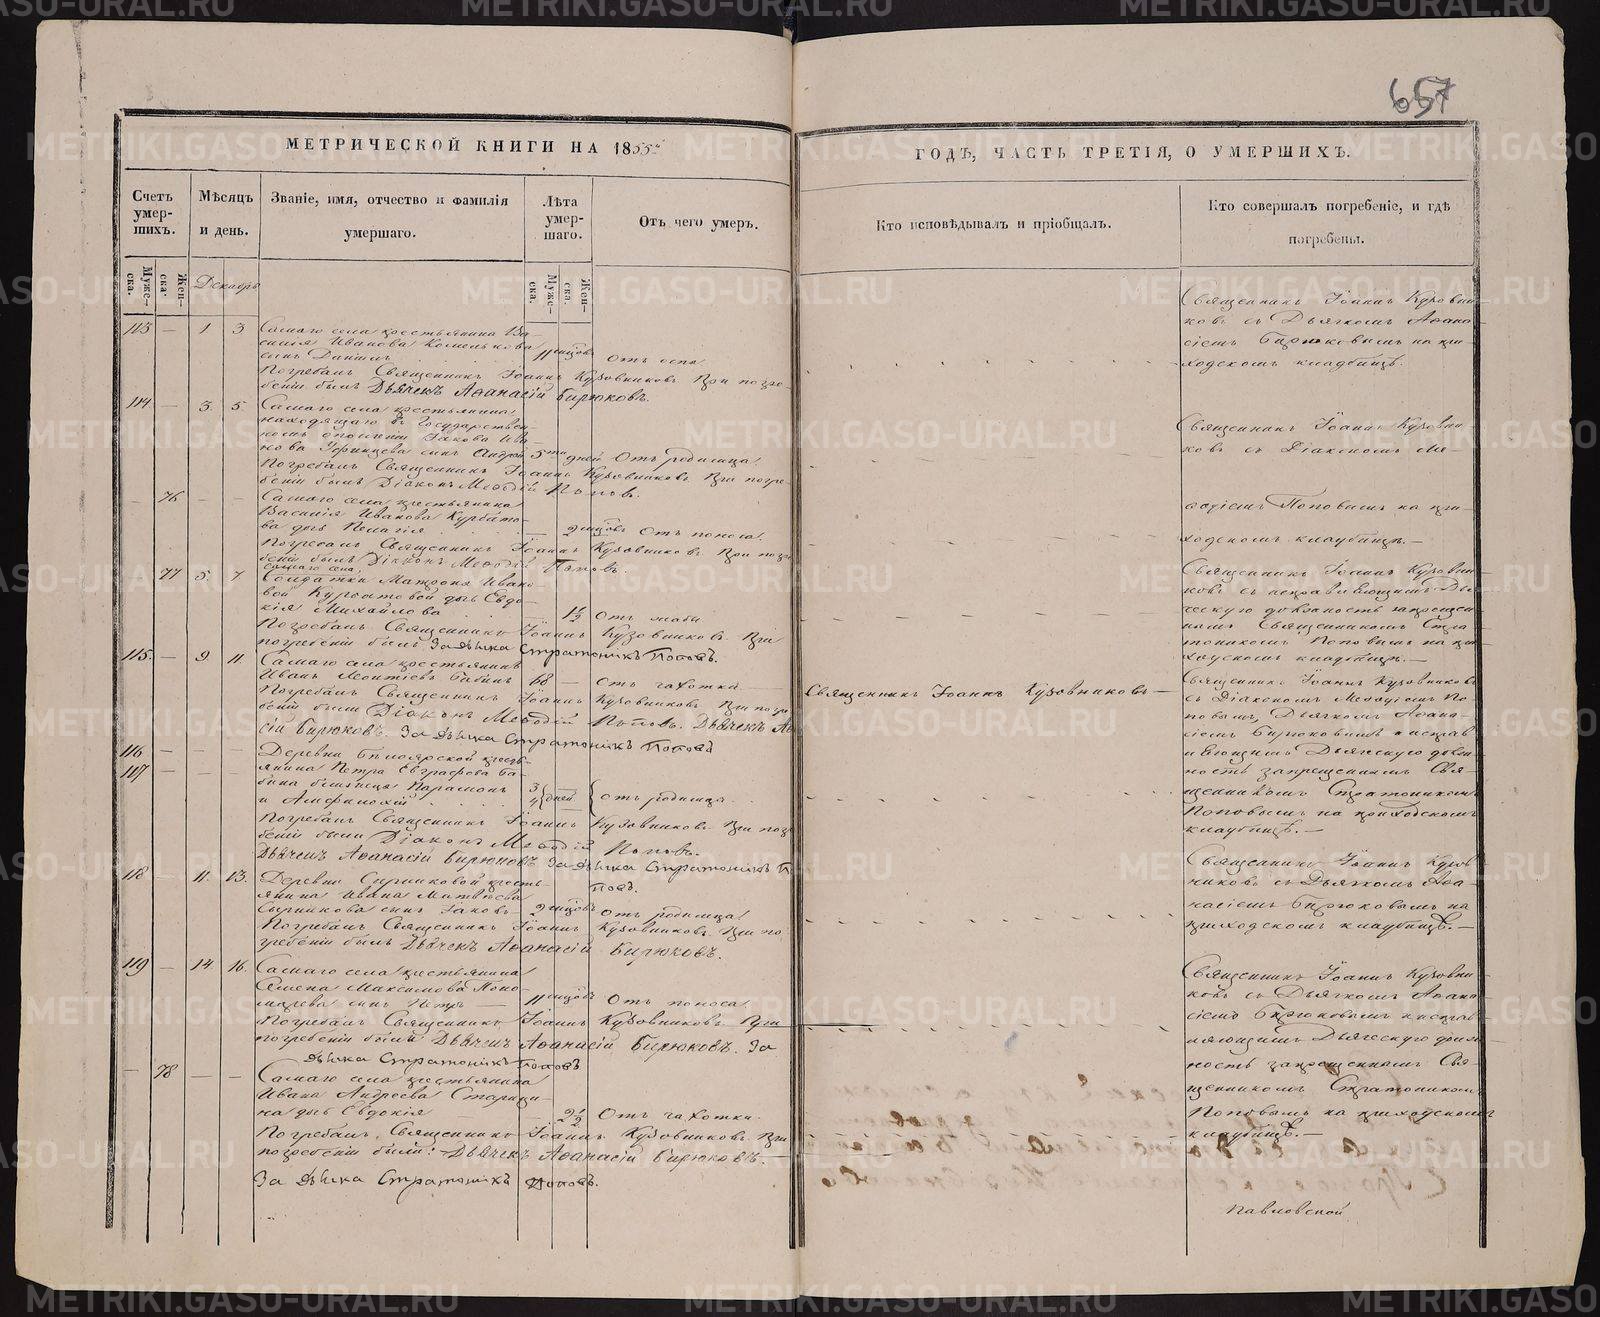 657
МЕТРИЧЕСКОЙ КНИГИ НА 1855
ГОДЪ, ЧАСТЬ ТРЕТІЯ, О УМЕРШИХЪ.
Счетъ умер-шихъ.
Мѣсяцъ и день.
Званіе, имя, отчество и фамилія умершаго.
Лѣта умер-шаго.
Отъ чего умеръ.
Кто исповѣдывалъ и пріобщалъ.
Кто совершалъ погребеніе, и гдѣ погребены.
Муже-ска.
Жен-ска.
Декабрь
Муже-ска.
Жен-ска.
113 — 1 3 Самаго села крестьянина Ва-
силія Иванова
сынъ Даніилъ 11 мцовъ Отъ оспы
Погребалъ Священникъ Іоаннъ Кузовниковъ При погре-
беніи былъ Дьячекъ Аѳанасій Бирюковъ.
Священникъ Іоаннъ Кузовни-
ковъ съ Дьячкомъ Аѳана-
сіемъ Бирюковымъ на при-
ходскомъ кладбищѣ.
114 — 3. 5. Самаго села крестьянина
находящаго въ Государствен-
номъ ополченіи Іакова Ива-
нова сынъ Андрей 5ти дней Отъ родимца
Погребалъ Священникъ Іоаннъ Кузовниковъ При погре-
беніи былъ Діаконъ Меѳодій Поповъ.
Священникъ Іоаннъ Кузовни-
ковъ съ Діакономъ Ме-
ѳодіемъ Поповымъ на при-
ходскомъ кладбищѣ.—
— 76 — — Самаго села крестьянина
Василія Иванова Курбато-
ва дчь Пелагія 2 мцовъ Отъ поноса.
Погребалъ Священникъ Іоаннъ Кузовниковъ При погре-
беніи былъ Діаконъ Меѳодій Поповъ.
самаго села
77 5. 7 Солдатки Матроны Ивано-
вой Курбатовой дчь Евдо-
кія Михайлова 1½ Отъ жабы
Погребалъ Священникъ Іоаннъ Кузовниковъ При
погребеніи былъ За дьячка Стратоникъ Поповъ.
Священникъ Іоаннъ Кузовни-
ковъ съ исправляющимъ Дья-
ческую должность запрещен-
нымъ Священникомъ Стра-
тоникомъ Поповымъ на при-
ходскомъ кладбищѣ.—
115. — 9. 11. Самаго села крестьянинъ
Иванъ Леонтіевъ Бабинъ 68 — Отъ чахотки —
Священникъ Іоаннъ Кузовниковъ —
Погребалъ Священникъ Іоаннъ Кузовниковъ При погре-
беніи были Діаконъ Меѳодій Поповъ. Дьячекъ Аѳ
сій Бирюковъ. За дьячка Стратоникъ Поповъ
Священникъ Іоаннъ Кузовниковъ
съ Діакономъ Меѳодіемъ По-
повымъ, Дьячкомъ Аѳана-
сіемъ Бирюковымъ и исправ-
ляющимъ Дьяческую долж-
ность запрещеннымъ Свя-
щенникомъ Стратоникомъ
Поповымъ на приходскомъ
кладбищѣ.—
116 — — — Деревни Белоярской кресть-
117 — — — янина Петра Евграфова Ба-
бина близнецы Парамонъ 3
и Амфилохій 4 дней отъ родимца.
Погребалъ Священникъ Іоаннъ Кузовниковъ При погре
беніи были Діаконъ Меѳодій Поповъ.
Дьячекъ Аѳанасій Бирюковъ За дьячка Стратоникъ П
Повъ.
118 — 11. 13. Деревни Сыриковой кресть-
янина Ивана Матвѣева
сынъ Іаковъ — 2 мцовъ Отъ родимца
Погребалъ Священникъ Іоаннъ Кузовниковъ При по-
гребеніи былъ Дьячекъ Аѳанасій Бирюковъ.
Священникъ Іоаннъ Кузов-
никовъ съ Дьячкомъ Аѳа-
насіемъ Бирюковымъ на
приходскомъ кладбищѣ.—
119 — 14 16. Самаго села крестьянина
Семена Максимова Поно-
марева сынъ Петръ — 11 мцовъ Отъ поноса
Погребалъ Священникъ Іоаннъ Кузовниковъ При
погребеніи былъ Дьячекъ Аѳанасій Бирюковъ. За
дьячка Стратоникъ Поповъ
Священникъ Іоаннъ Кузовни-
ковъ съ Дьячкомъ Аѳана-
сіемъ Бирюковымъ и исправ-
ляющимъ Дьяческую долж-
ность запрещеннымъ Свя-
щенникомъ Стратоникомъ
Поповымъ на приходскомъ
кладбищѣ.—
— 78 — — Самаго села крестьянина
Ивана Андреева Старици-
на дчь Евдокія 2½ Отъ чахотки.
Погребалъ Священникъ Іоаннъ Кузовниковъ При
погребеніи были: Дьячекъ Аѳанасій Бирюковъ.—
За дьячка Стратоникъ Поповъ.
Павловской
METRIKI.GASO-URAL.RU